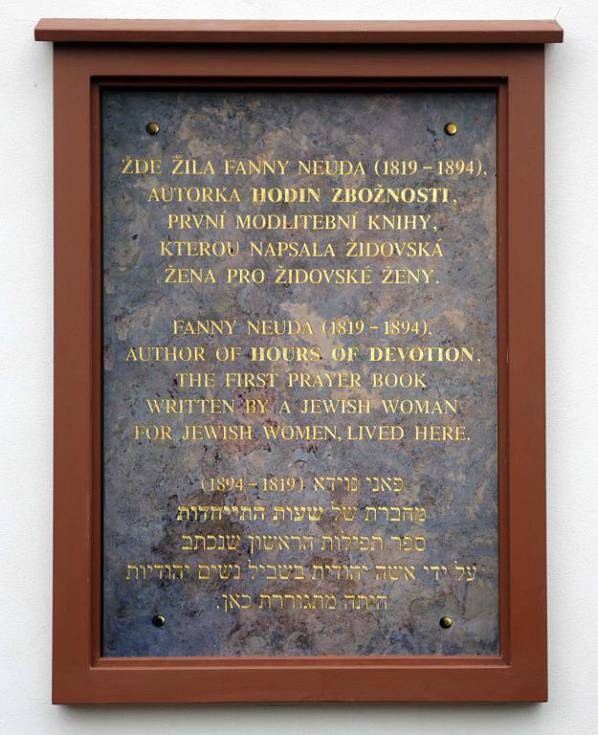 ŽDE ŽILA FANNY NEUDA (1819–1894),
AUTORKA HODIN ZBOŽNOSTI,
PRVNÍ MODLITEBNÍ KNIHY,
KTEROU NAPSALA ŽIDOVSKÁ
ŽENA PRO ŽIDOVSKÉ ŽENY.
FANNY NEUDA (1819–1894),
AUTHOR OF HOURS OF DEVOTION,
THE FIRST PRAYER BOOK
WRITTEN BY A JEWISH WOMAN
FOR JEWISH WOMEN, LIVED HERE.
פאני נוידא (1819–1894)
מחברת של שעות התייחדות
ספר תפילות הראשון שנכתב
על ידי אשה יהודית בשביל נשים יהודיות
היתה מתגוררת כאן.